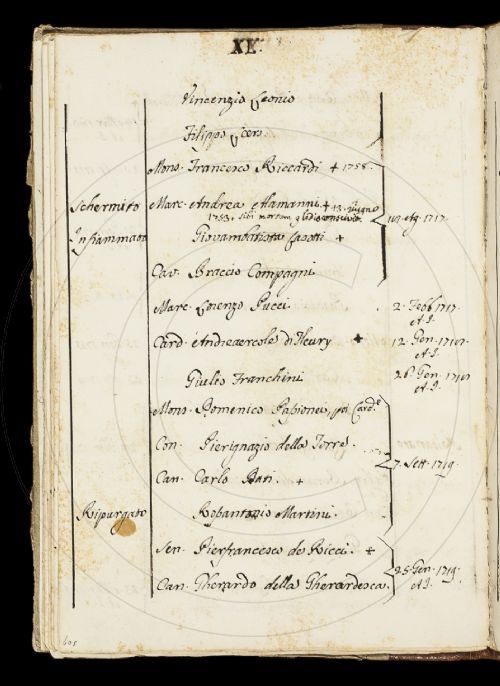 XII.
Vincenzio Leonio
Filippo Ucers.
Mons. Francesco Riccardi + 1758.
Schermito Marc. Andrea Alamanni + 13. Giugno
1753. sibi mortem gladio conscivit. 10. Ag. 1717.
Infiammato Giovambatista Casotti +
Cav. Braccio Compagni
Marc. Lorenzo Pucci. 2. Febb 1717.
A.I.
Card. Andreaercole di Fleury + 12. Gen. 1717.
A.I.
Giulio Franchini 26. Gen. 1717
A.I.
Mons. Domenico Passionei, poi Card.e
Con. Pierignazio della Torre.
7. Sett. 1719.
Can. Carlo Bari. +
Ripurgato Robantonio Martini.
Sen. Pierfrancesco de Ricci. +
25. Gen. 1719.
A.I.
Can. Gherardo della Gherardesca.